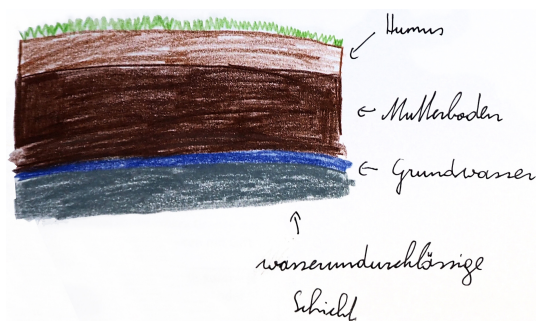 Humus
Mutterboden
Grundwasser
wasserundurchlässige
Schicht